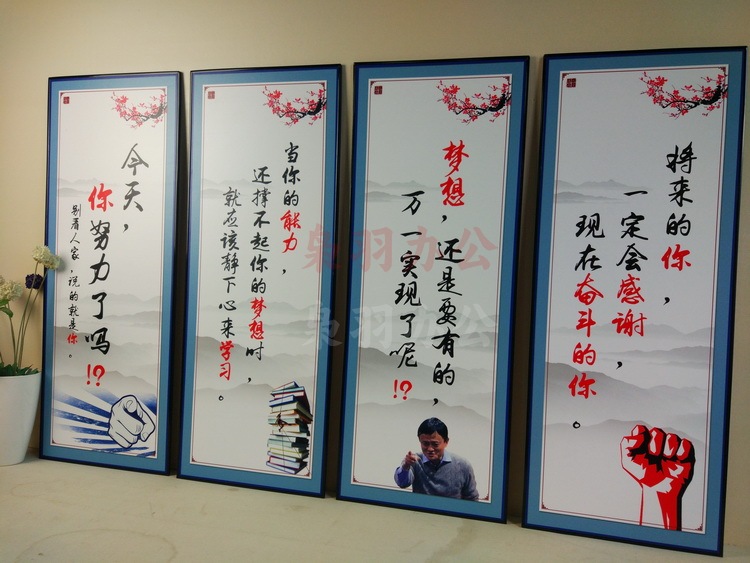 今天，
你努力了吗!?
别看人家，说的就是你。
当你的能力，
还撑不起你的梦想时，
就应该静下心来学习。
梦想，还是要有的，
万一实现了呢!?
将来的你，
一定会感谢，
现在奋斗的你。
枭羽办公
枭羽办公